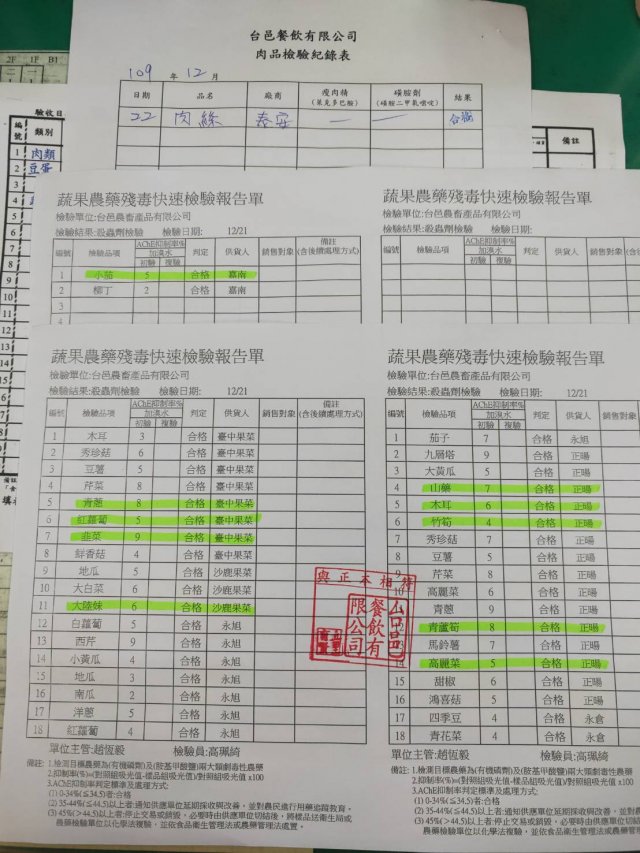 台邑餐飲有限公司
肉品檢驗紀錄表
109 年 12 月
日期 品名 廠商 瘦肉精 (萊克多巴胺) 磺胺劑 (磺胺二甲氧嘧啶) 結果
22 肉絲 泰安 — — 合格
2F 1F B1
驗收日
編號 類別 備註
1 肉類
2 豆蛋
3
4
5
6
蔬果農藥殘毒快速檢驗報告單
檢驗單位:台邑農畜產品有限公司
檢驗結果:殺蟲劑檢驗 檢驗日期: 12/21
編號 檢驗品項 AChE抑制率% 加溴水 初驗 複驗 判定 供貨人 銷售對象 備註 (含後續處理方式)
1 小茄 5 合格 嘉南
2 柳丁 2 合格 嘉南
3
蔬果農藥殘毒快速檢驗報告單
檢驗單位:台邑農畜產品有限公司
檢驗結果:殺蟲劑檢驗 檢驗日期: 12/21
編號 檢驗品項 AChE抑制率% 加溴水 初驗 複驗 判定 供貨人 銷售對象 (含後
1
2
3
蔬果農藥殘毒快速檢驗報告單
檢驗單位:台邑農畜產品有限公司
檢驗結果:殺蟲劑檢驗 檢驗日期: 12/21
編號 檢驗品項 AChE抑制率% 加溴水 初驗 複驗 判定 供貨人 銷售對象 備註 (含後續處理方式)
1 木耳 3 合格 臺中果菜
2 秀珍菇 6 合格 臺中果菜
3 豆薯 5 合格 臺中果菜
4 芹菜 8 合格 臺中果菜
5 青蔥 8 合格 臺中果菜
6 紅蘿蔔 5 合格 臺中果菜
7 韭菜 9 合格 臺中果菜
8 鮮香菇 4 合格 臺中果菜
9 地瓜 5 合格 沙鹿果菜
10 大白菜 6 合格 沙鹿果菜
11 大陸妹 6 合格 沙鹿果菜
12 白蘿蔔 5 合格 永旭
13 西芹 9 合格 永旭
14 小黃瓜 4 合格 永旭
15 地瓜 3 合格 永旭
16 南瓜 2 合格 永旭
17 洋蔥 5 合格 永旭
18 紅蘿蔔 4 合格 永旭
單位主管:趙恆毅 檢驗員:高珮綺
備註: 1.檢測目標農藥為(有機磷劑)及(胺基甲酸鹽)兩大類劇毒性農藥
2.抑制率(%)=(對照組吸光值-樣品組吸光值)/對照組吸光值 x100
3.AChE抑制率判定標準及處理方式:
(1) 0-34%(≤34.5)者:合格
(2) 35-44%(≤44.5)以上者:通知供應單位延期採收與改善，並對農民進行用藥追蹤教育。
(3) 45%(>44.5)以上者:停止交易或銷毀，必要時由供應單位切結後，將樣品送衛生局或
農藥檢驗單位以化學法複驗，並依食品衛生管理法或農藥管理法處置。
蔬果農藥殘毒快速檢驗報告單
檢驗單位:台邑農畜產品有限公司
檢驗結果:殺蟲劑檢驗 檢驗日期: 12/21
編號 檢驗品項 AChE抑制率% 加溴水 初驗 複驗 判定 供貨人 銷售對象 (含後
1 茄子 7 合格 永旭
2 九層塔 9 合格 正暘
3 大黃瓜 5 合格 正暘
4 山藥 7 合格 正暘
5 木耳 6 合格 正暘
6 竹筍 4 合格 正暘
7 秀珍菇 7 合格 正暘
8 豆薯 5 合格 正暘
9 芹菜 8 合格 正暘
10 高麗菜 6 合格 正暘
青蔥 9 合格 正暘
青蘆筍 8 合格 正暘
馬鈴薯 7 合格 正暘
14 高麗菜 5 合格 正暘
15 甜椒 6 合格 正暘
16 鴻喜菇 5 合格 正暘
17 四季豆 4 合格 永倉
18 青花菜 4 合格 永倉
單位主管:趙恆毅 檢驗員:高珮綺
備註: 1.檢測目標農藥為(有機磷劑)及(胺基甲酸鹽)兩大類劇毒性農藥
2.抑制率(%)=(對照組吸光值-樣品組吸光值)/對照組吸光值 x100
3.AChE抑制率判定標準及處理方式:
(1) 0-34%(≤34.5)者:合格
(2) 35-44%(≤44.5)以上者:通知供應單位延期採收與改善，並對農
(3) 45%(>44.5)以上者:停止交易或銷毀，必要時由供應單位切
農藥檢驗單位以化學法複驗，並依食品衛生管理法或農藥管理法
與正本相符
台邑餐飲有限公司